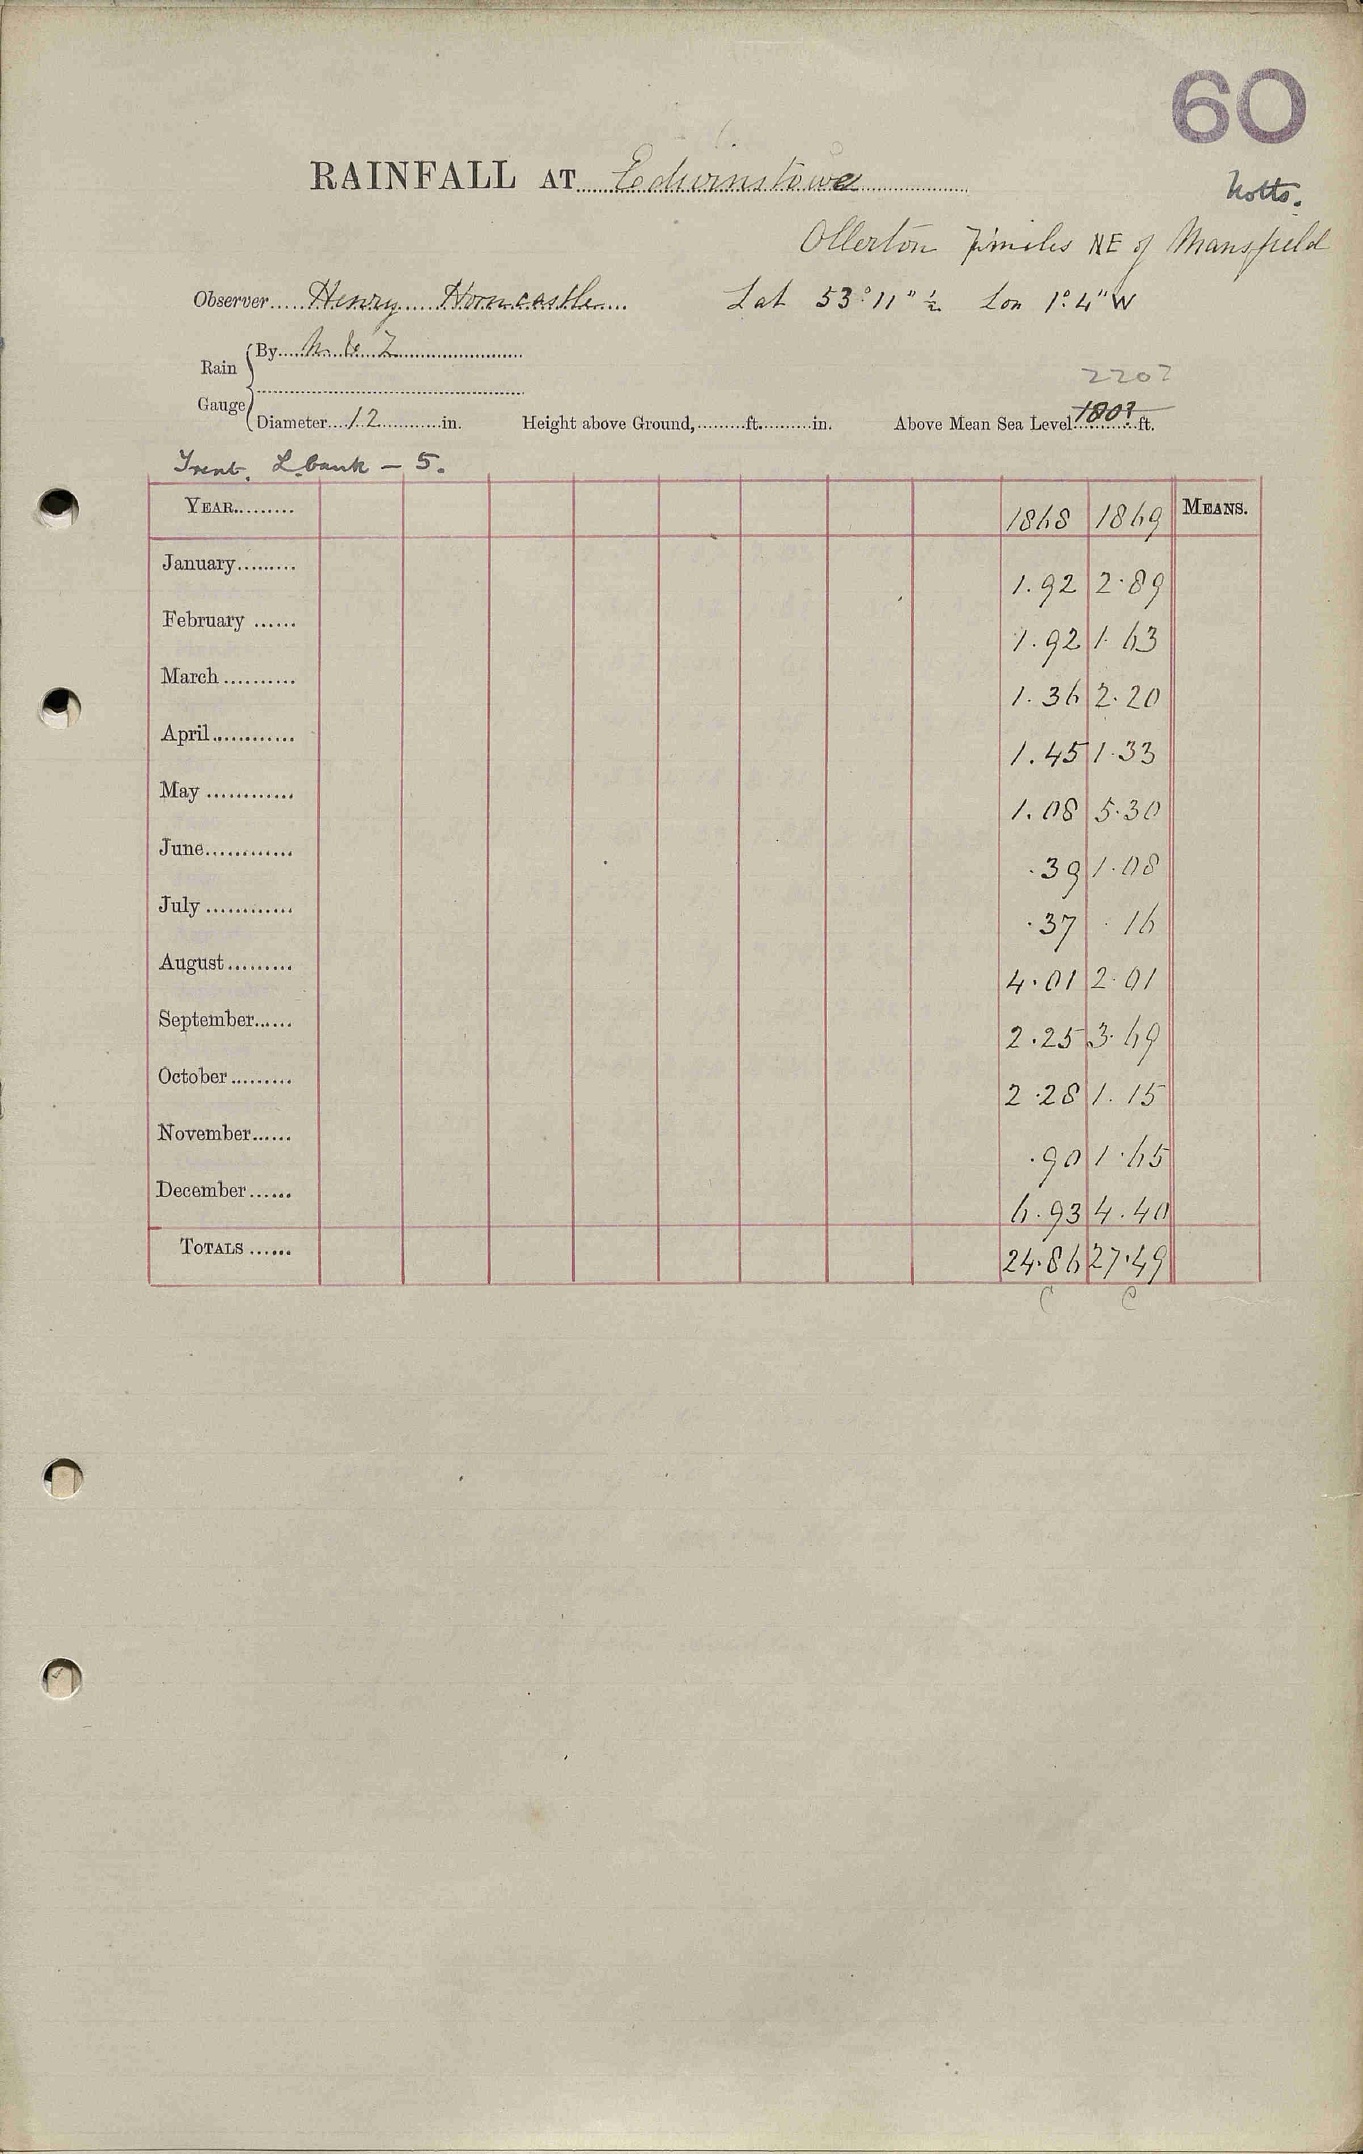 60
RAINFALL AT Edwinstowe
Notts.
Ollerton 7 miles NE of Mansfield
Observer Henry Horncastle Lat 53° 11" ½ Lon 1° 4" W
Rain Gauge
By N & Z
220?
Diameter 12 in. Height above Ground, ft. in. Above Mean Sea Level 180? ft.
Trent. L bank – 5.
YEAR 1868 1869 MEANS.
January 1.92 2.89
February 1.92 1.63
March 1.36 2.20
April 1.45 1.33
May 1.08 5.30
June .39 1.08
July .37 .16
August 4.01 2.01
September 2.25 3.69
October 2.28 1.15
November .90 1.65
December 6.93 4.40
TOTALS 24.86 27.49
C C